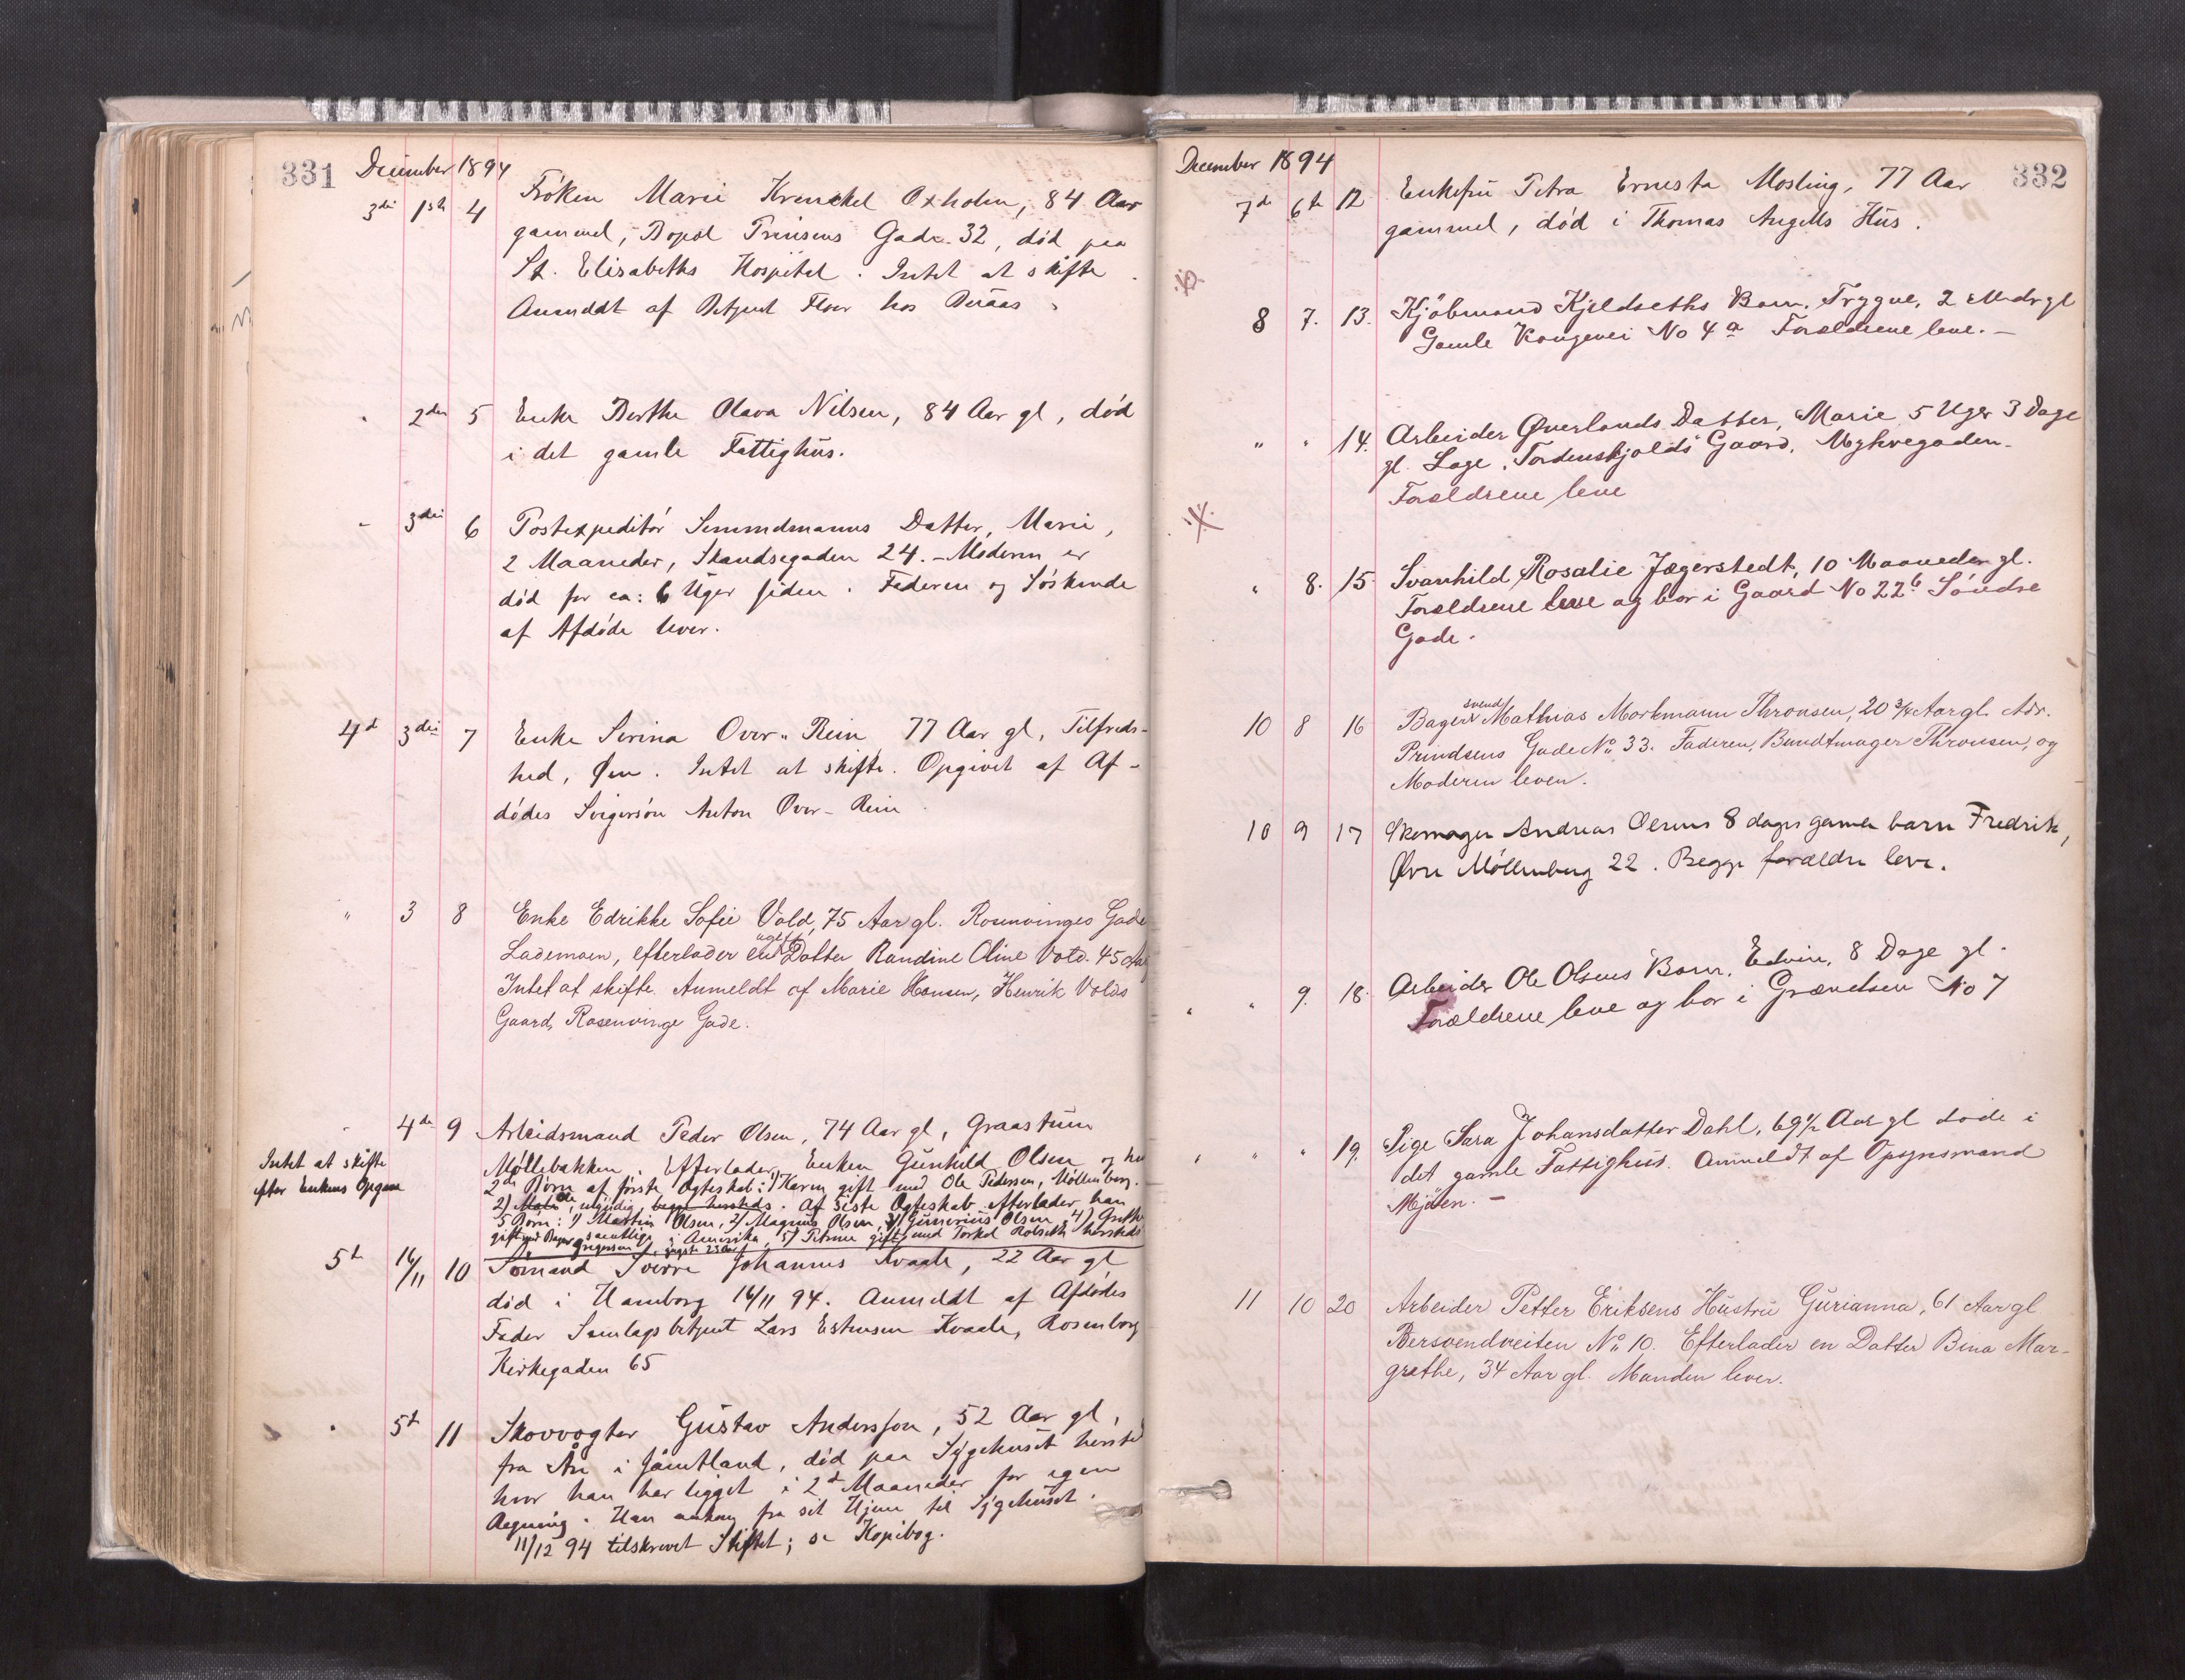 331 December 1894
3die 1ste 4 Fröken Marie Krenckel Oxholm, 84 Aar
gammel, Bopæl Prinsens Gade 32, död paa
St. Elisabeths Hospital. Intet at skifte.
Anmeldt af Betjent Floer hos Buaas.
" 2den 5 Enke Berthe Olava Nilsen, 84 Aar gl, död
i det gamle Fattighus.
" 3die 6 Postexpeditör Datter, Marie,
2 Maaneder, Skandsegaden 24. - Moderen er
död for ca: 6 Uger siden. Faderen og Söskende
af Afdöde lever.
4d 3die 7 Enke Serina Over-Rein 77 Aar gl, Tilfreds-
hed, Øen. Intet at skifte. Opgivet af Af-
dödes Svigersön Anton Over-Rein
" 3 8 Enke Edrikke Sofie Vold, 75 Aar gl. Rosenvinges Gade
Lademoen, efterlader en ugift Datter Randine Oline Vold. 45 Aar
Intet at skifte. Anmeldt af Marie Hansen, Henrik Volds
Gaard, Rosenvinge Gade.
" 4de 9 Arbeidsmand Peder Olsen, 74 Aar gl, Graastuen
Intet at skifte
efter Enkens Opgave
Möllebakken. Efterlader Enken Gunhild Olsen og har
2de Börn af förste Ægteskab: 1) Karen gift med Ole Pedersen, Möllenberg.
2) umyndig, begge hersteds. Af siste Ægteskab efterlader han
5 Börn: 1) Martin Olsen, 2) Magnus Olsen, 3) Gunerius Olsen, 4) Grethe
gift med Bager Gregersen samtlige i Amerika, 5) Petrine gift med Torkel Rolseth hersteds
yngste 23 Aar
5te 16/11 10 Sömand Sverre Johannes Kvaale, 22 Aar gl,
död i Hamborg 16/11 94. Anmeldt af Afdödes
Fader Samlagsbetjent Lars Estensen Kvaale, Rosenborg
Kirkegaden 65
" 5te 11 Skovvogter Gustav Andersson, 52 Aar gl,
fra Åre i Jämtland, död paa Sygehuset hersteds
hvor han har ligget i 2de Maaneder for egen
Regning. Han ankom fra sit Hjem til Sygehuset.
11/12 94 tilskrevet Stiftet; se Kopibog.
December 1894 332
7de 6te 12 Enkefru Petra Ernesta Mosling, 77 Aar
gammel, död i Thomas Angells Hus.
8 7. 13. Kjöbmand Kjeldseths Barn, Trygve, 2 Mdr gl
Gamle Kongevei No 4a Forældrene leve. -
" " 14. Arbeider Øverlands Datter, Marie 5 Uger 3 Dage
gl. Lage. Tordenskjolds Gaard, Myhregaden -
Forældrene leve
" 8. 15 Svanhild Rosalie Jægerstedt, 10 Maaneder gl.
Forældrene leve og bor i Gaard No 22b Söndre
Gade.
10 8 16 Bagersvend Mathias Morkmann Thronsen, 20 3/4 Aar gl. Adr.
Prindsens Gade No 33. Faderen, Bundtmager Thronsen, og
Moderen lever.
10 9 17 Skomager Andreas Olsens 8 dages gamle barn Fredrik,
Øvre Möllenberg 22. Begge forældre leve.
" " 9. 18. Arbeider Ole Olsens Barn, Edvin, 8 Dage gl.
Forældrene leve og bor i Grændsen No 7
" " " 19. Pige Sara Johansdatter Dahl, 69 1/2 Aar gl döde i
det gamle Fattighus. Anmeldt af Opsynsmand
Mjöen. -
11 10 20 Arbeider Petter Eriksens Hustru Gurianna, 61 Aar gl.
Bersvendveiten No 10. Efterlader en Datter Bina Mar-
grethe, 34 Aar gl. Manden lever.